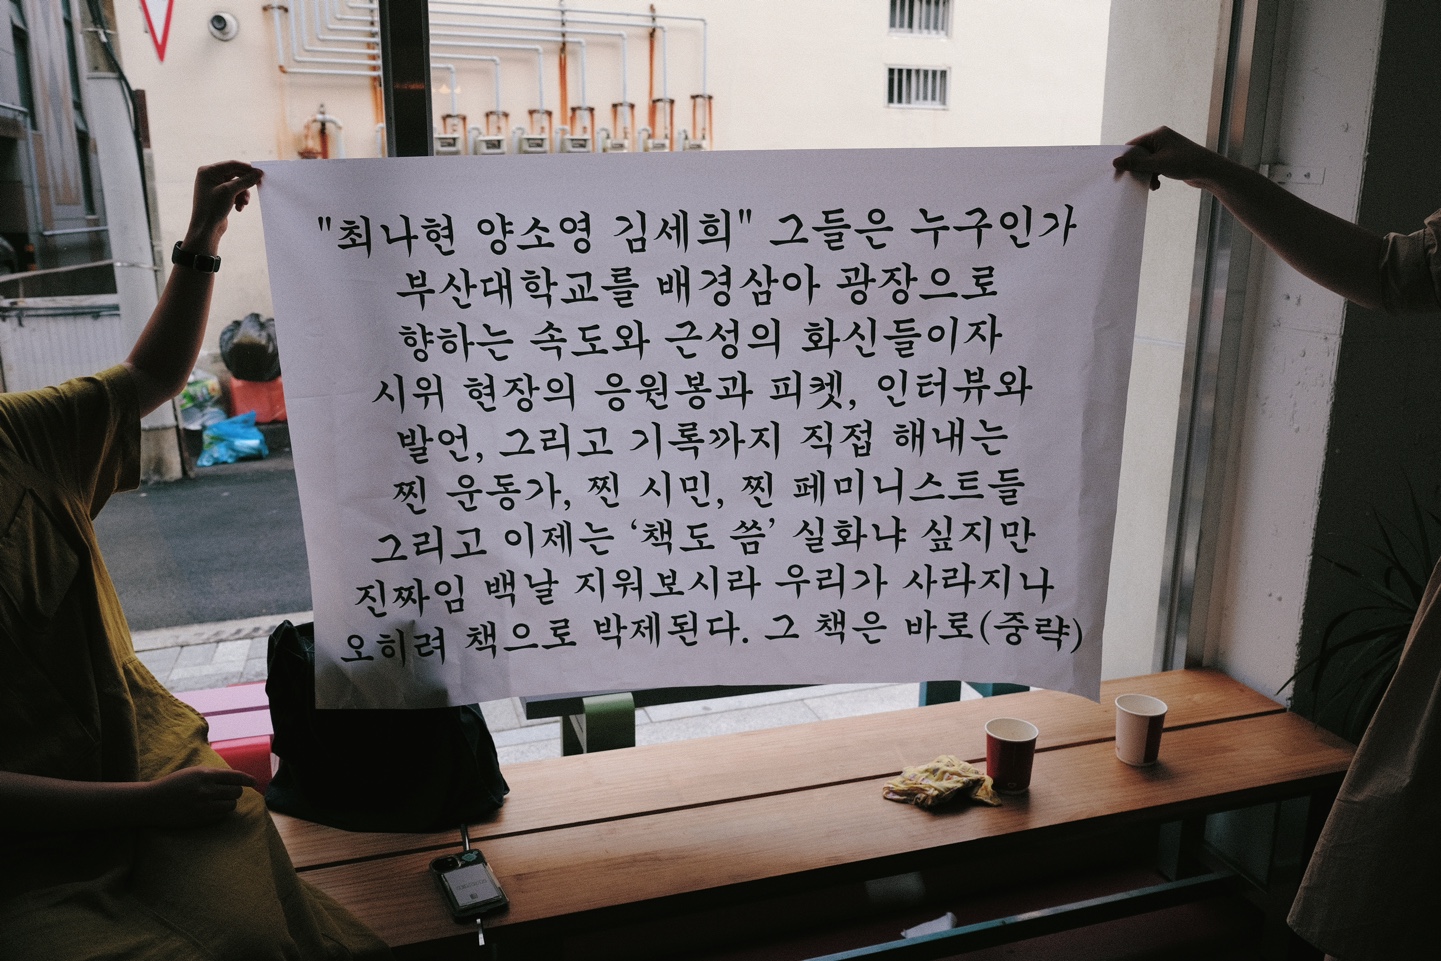 "최나현 양소영 김세희" 그들은 누구인가
부산대학교를 배경삼아 광장으로
향하는 속도와 근성의 화신들이자
시위 현장의 응원봉과 피켓, 인터뷰와
발언, 그리고 기록까지 직접 해내는
찐 운동가, 찐 시민, 찐 페미니스트들
그리고 이제는 ‘책도 씀’ 실화냐 싶지만
진짜임 백날 지워보시라 우리가 사라지나
오히려 책으로 박제된다. 그 책은 바로(중략)